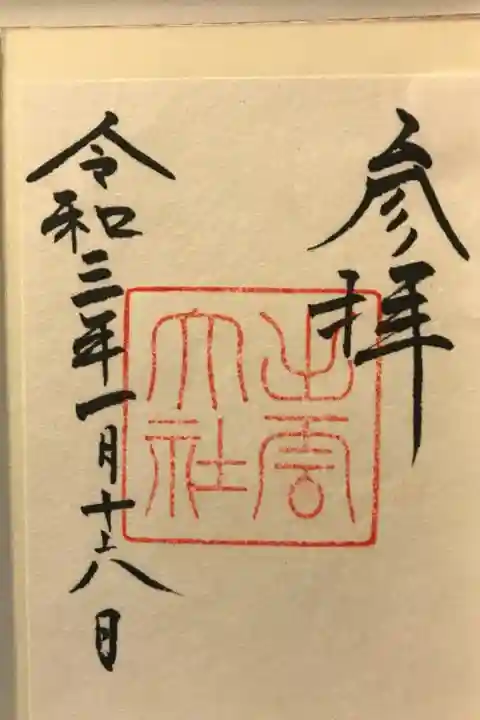 参拝
出雲
大社
令和三年一月十八日